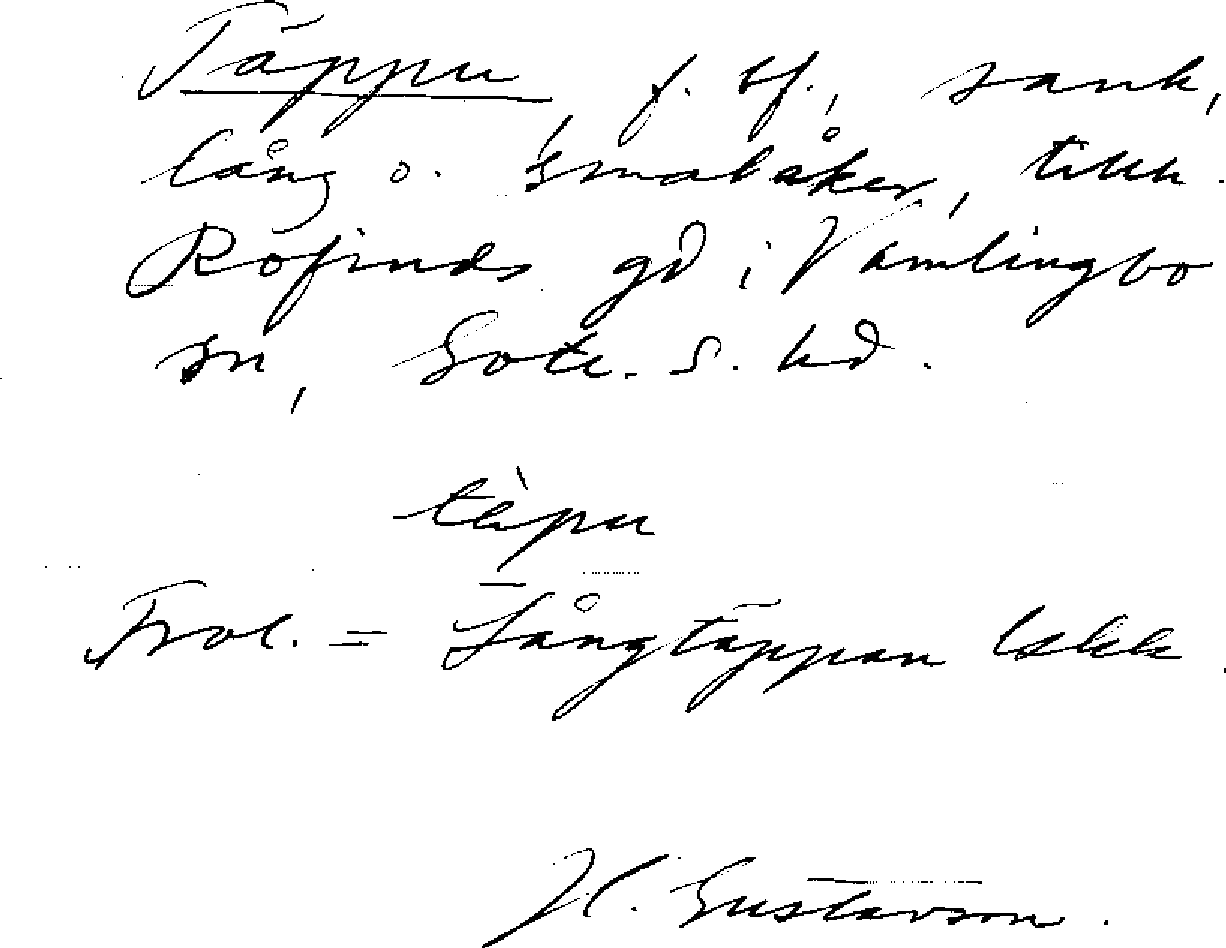 Täppu, f. bf., sank,
lång o. smal åker, tillh.
Rofinds gd i Vamlingbo
sn, Gotl. S. hd.
tèpu
Trol. = Långtäppan lskk.
H. Gustavson.